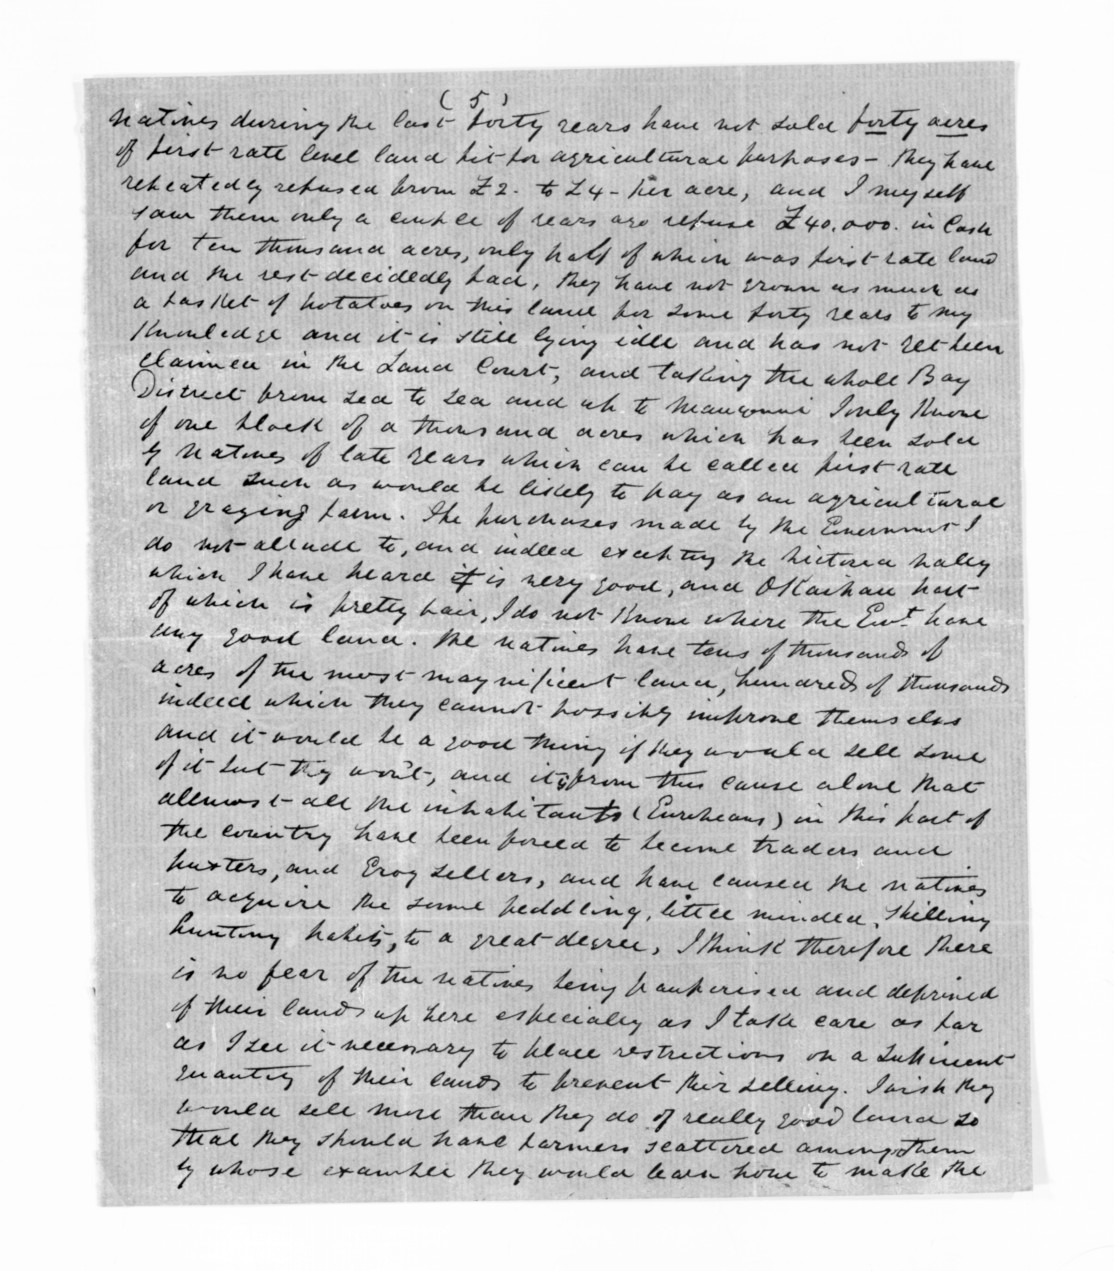 (5)
natives during the last forty years have not sold forty acres
of first rate level land fit for agricultural purposes – they have
repeatedly refused from £2. to £4 – per acre, and I myself
saw them only a couple of years ago refuse £40,000. in Cash
for ten thousand acres, only half of which was first rate land
and the rest decidedly bad, they have not grown as much as
a basket of potatoes on this land for some forty years to my
Knowledge and it is still lying idle and has not yet been
claimed in the Land Court, and taking the whole Bay
District from sea to sea and up to Mangonui I only Know
of one block of a thousand acres which has been sold
by Natives of late years which can be called first rate
land such as would be likely to pay as an agricultural
or grazing farm. The purchases made by the Government I
do not allude to, and indeed excepting the Victoria Valley
which I have heard is very good, and Okaihau part
of which is pretty fair, I do not Know where the Govt. have
any good land. The natives have tens of thousands of
acres of the most magnificent land, hundreds of thousands
indeed which they cannot possibly improve themselves
and it would be a good thing if they would sell some
of it but they won't, and it is from this cause alone that
allmost all the inhabitants (Europeans) in this part of
the country have been forced to become traders and
huxters, and Grog sellers, and have caused the natives
to acquire the same peddling, little minded, shilling
hunting habits, to a great degree, I think therefore there
is no fear of the natives being pauperised and deprived
of their lands up here especially as I take care as far
as I see it necessary to place restrictions on a sufficient
quantity of their lands to prevent their selling. I wish they
would sell more than they do of really good land so
that they should have farmers scattered among them
by whose example they would learn how to make the